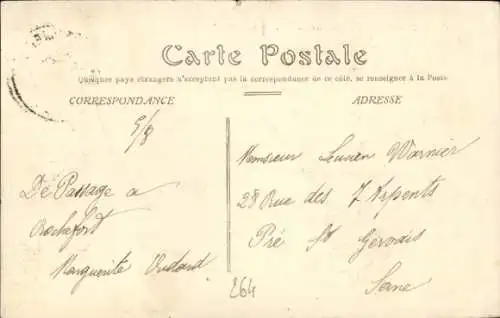 Carte Postale
Quelques pays étrangers n'acceptent pas la correspondance de ce côté, se renseigner à la Poste
CORRESPONDANCE
ADRESSE
5/8
De Passage a
Rochefort
Marguerite
Monsieur Lucien Warnier
28 Rue des 7 Arpents
Pré St Gervais
Seine
264